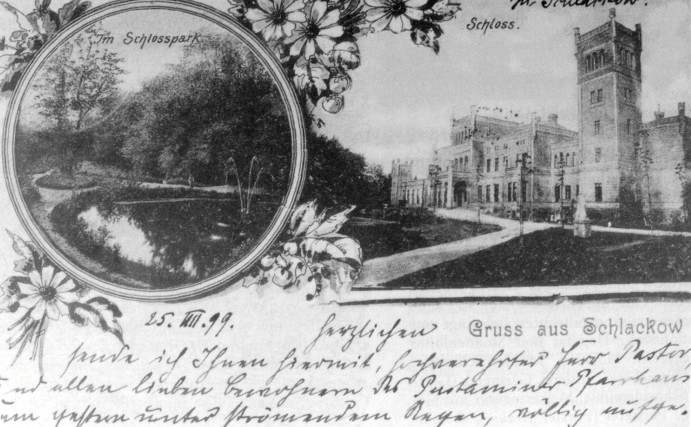 Im Schlosspark.
Schlackow.
Schloss.
25. VIII. 99.
herzlichen
Gruss aus Schlackow
sende ich Ihnen hiermit, hochverehrter Herr Pastor,
und allen lieben Bewohnern des Pustaminer Pfarrhaus
um gestern unter strömendem Regen, völlig aufge-